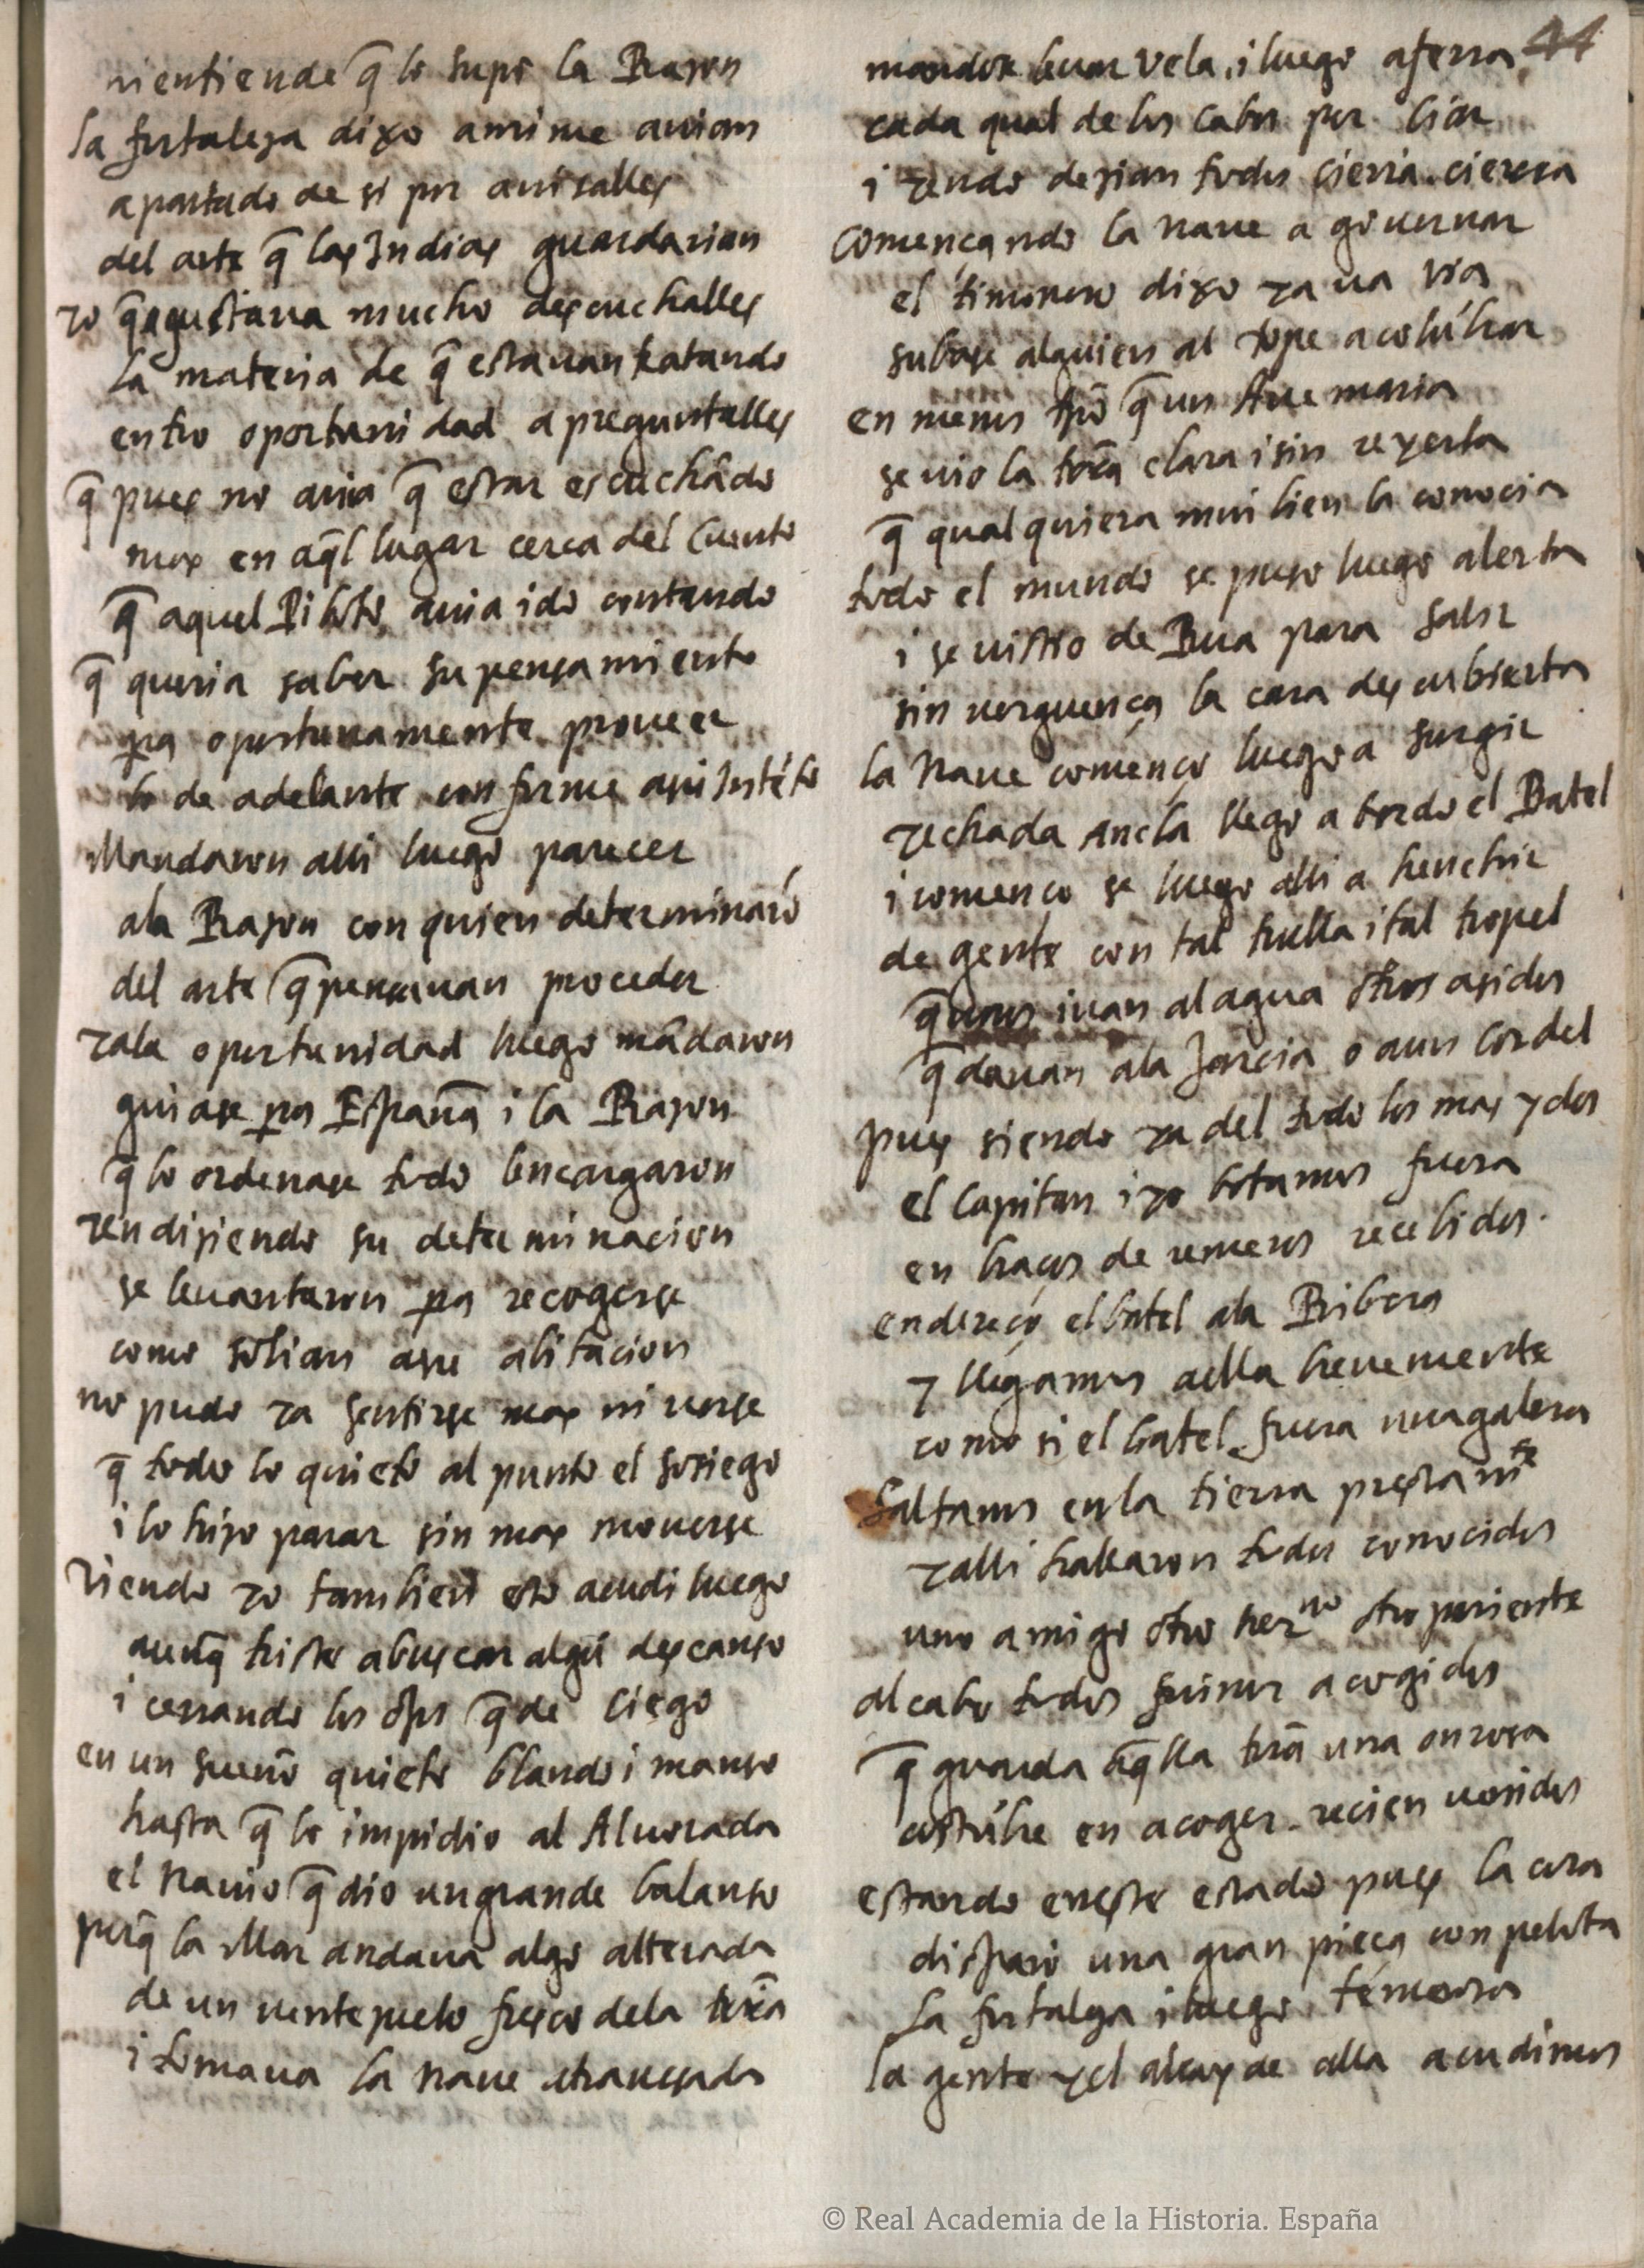 ni entiende q̄ lo supo la Razon
la fortaleza dixo a mi me auian
apartado de si por auisalles
del arte q̄ las Indias guardarian
yo q̄ gustaua mucho descuchalles
la materia de q̄ estauan tratando
entro oportunidad a preguntalles
q̄ pues no auia q̄ estar escuchādo
mas en aq̄l lugar cerca del cuento
q̄ aquel Piloto auia ido contando
q̄ queria saber su pensamiento
pa oportunamente proueer
lo de adelante conforme a su Intēto
Mandaron alli luego parecer
ala Razon con quien determinarō
del arte q̄ pensauan proceder
yala oportunidad luego mādaron
guiase pa España i la Razon
q̄ lo ordenase todo lencargaron
yen diziendo su determinacion
se leuantaron pa recogerse
como solian a su abitacion
no pudo ya sentirse mas ni uerse
q̄ todo lo quieto al punto el sosiego
i lo hizo parar sin mas mouerse
Viendo yo tambien esto acudi luego
aunq̄ triste a buscar algū descanso
i cerrando los ojos q̄de ciego
en un sueño quieto blando i manso
hasta q̄ lo impidio al Aluorada
el nauio q̄ dio un grande balanso
porq̄ la Mar andaua algo alterada
de un uentezuelo fresco dela trā
i tomaua la naue atrauesada
44
mandox leuar vela, i luego aferra
cada qual de los cabos por liar
i yendo dezian todos cierra cierra
comencando la naue a gouernar
el timonero dixo ya ua via
subase alguien al tope a colūbrar
en menos tpō q̄ un Aue maria
se uio la trā clara i sin reyerta
q̄ qualquiera mui bien la conocia
todo el mundo se puso luego alerta
i se uistio de Rua para salir
sin uerguença la cara descubierta
la naue començo luego a surgir
yechada ancla llego a bordo el Batel
i comenco se luego alli a henchir
de gente con tal trulla i tal tropel
q̄ unos iuan al agua otros asidos
q̄dauan ala Jarcia o a un cordel
pues siendo ya del todo los mas ydos
el Capitan i yo botamos fuera
en braços de remeros recebidos.
endereço el batel ala Ribera
y llegamos a ella breuemente
como si el batel fuera una galera
Saltamos en la tierra prestamte
yalli hallaron todos conocidos
uno amigo otro herno otro pariente
al cabo todos fuimos acogidos
q̄ guarda aq̄lla trā una onrosa
costūbre en acoger recien uenidos
estando eneste estado pues la cosa
disparo una gran pieça con pelota
la fortalesa i luego temerosa
la gente yel alcayde alla acudimos
© Real Academia de la Historia. España